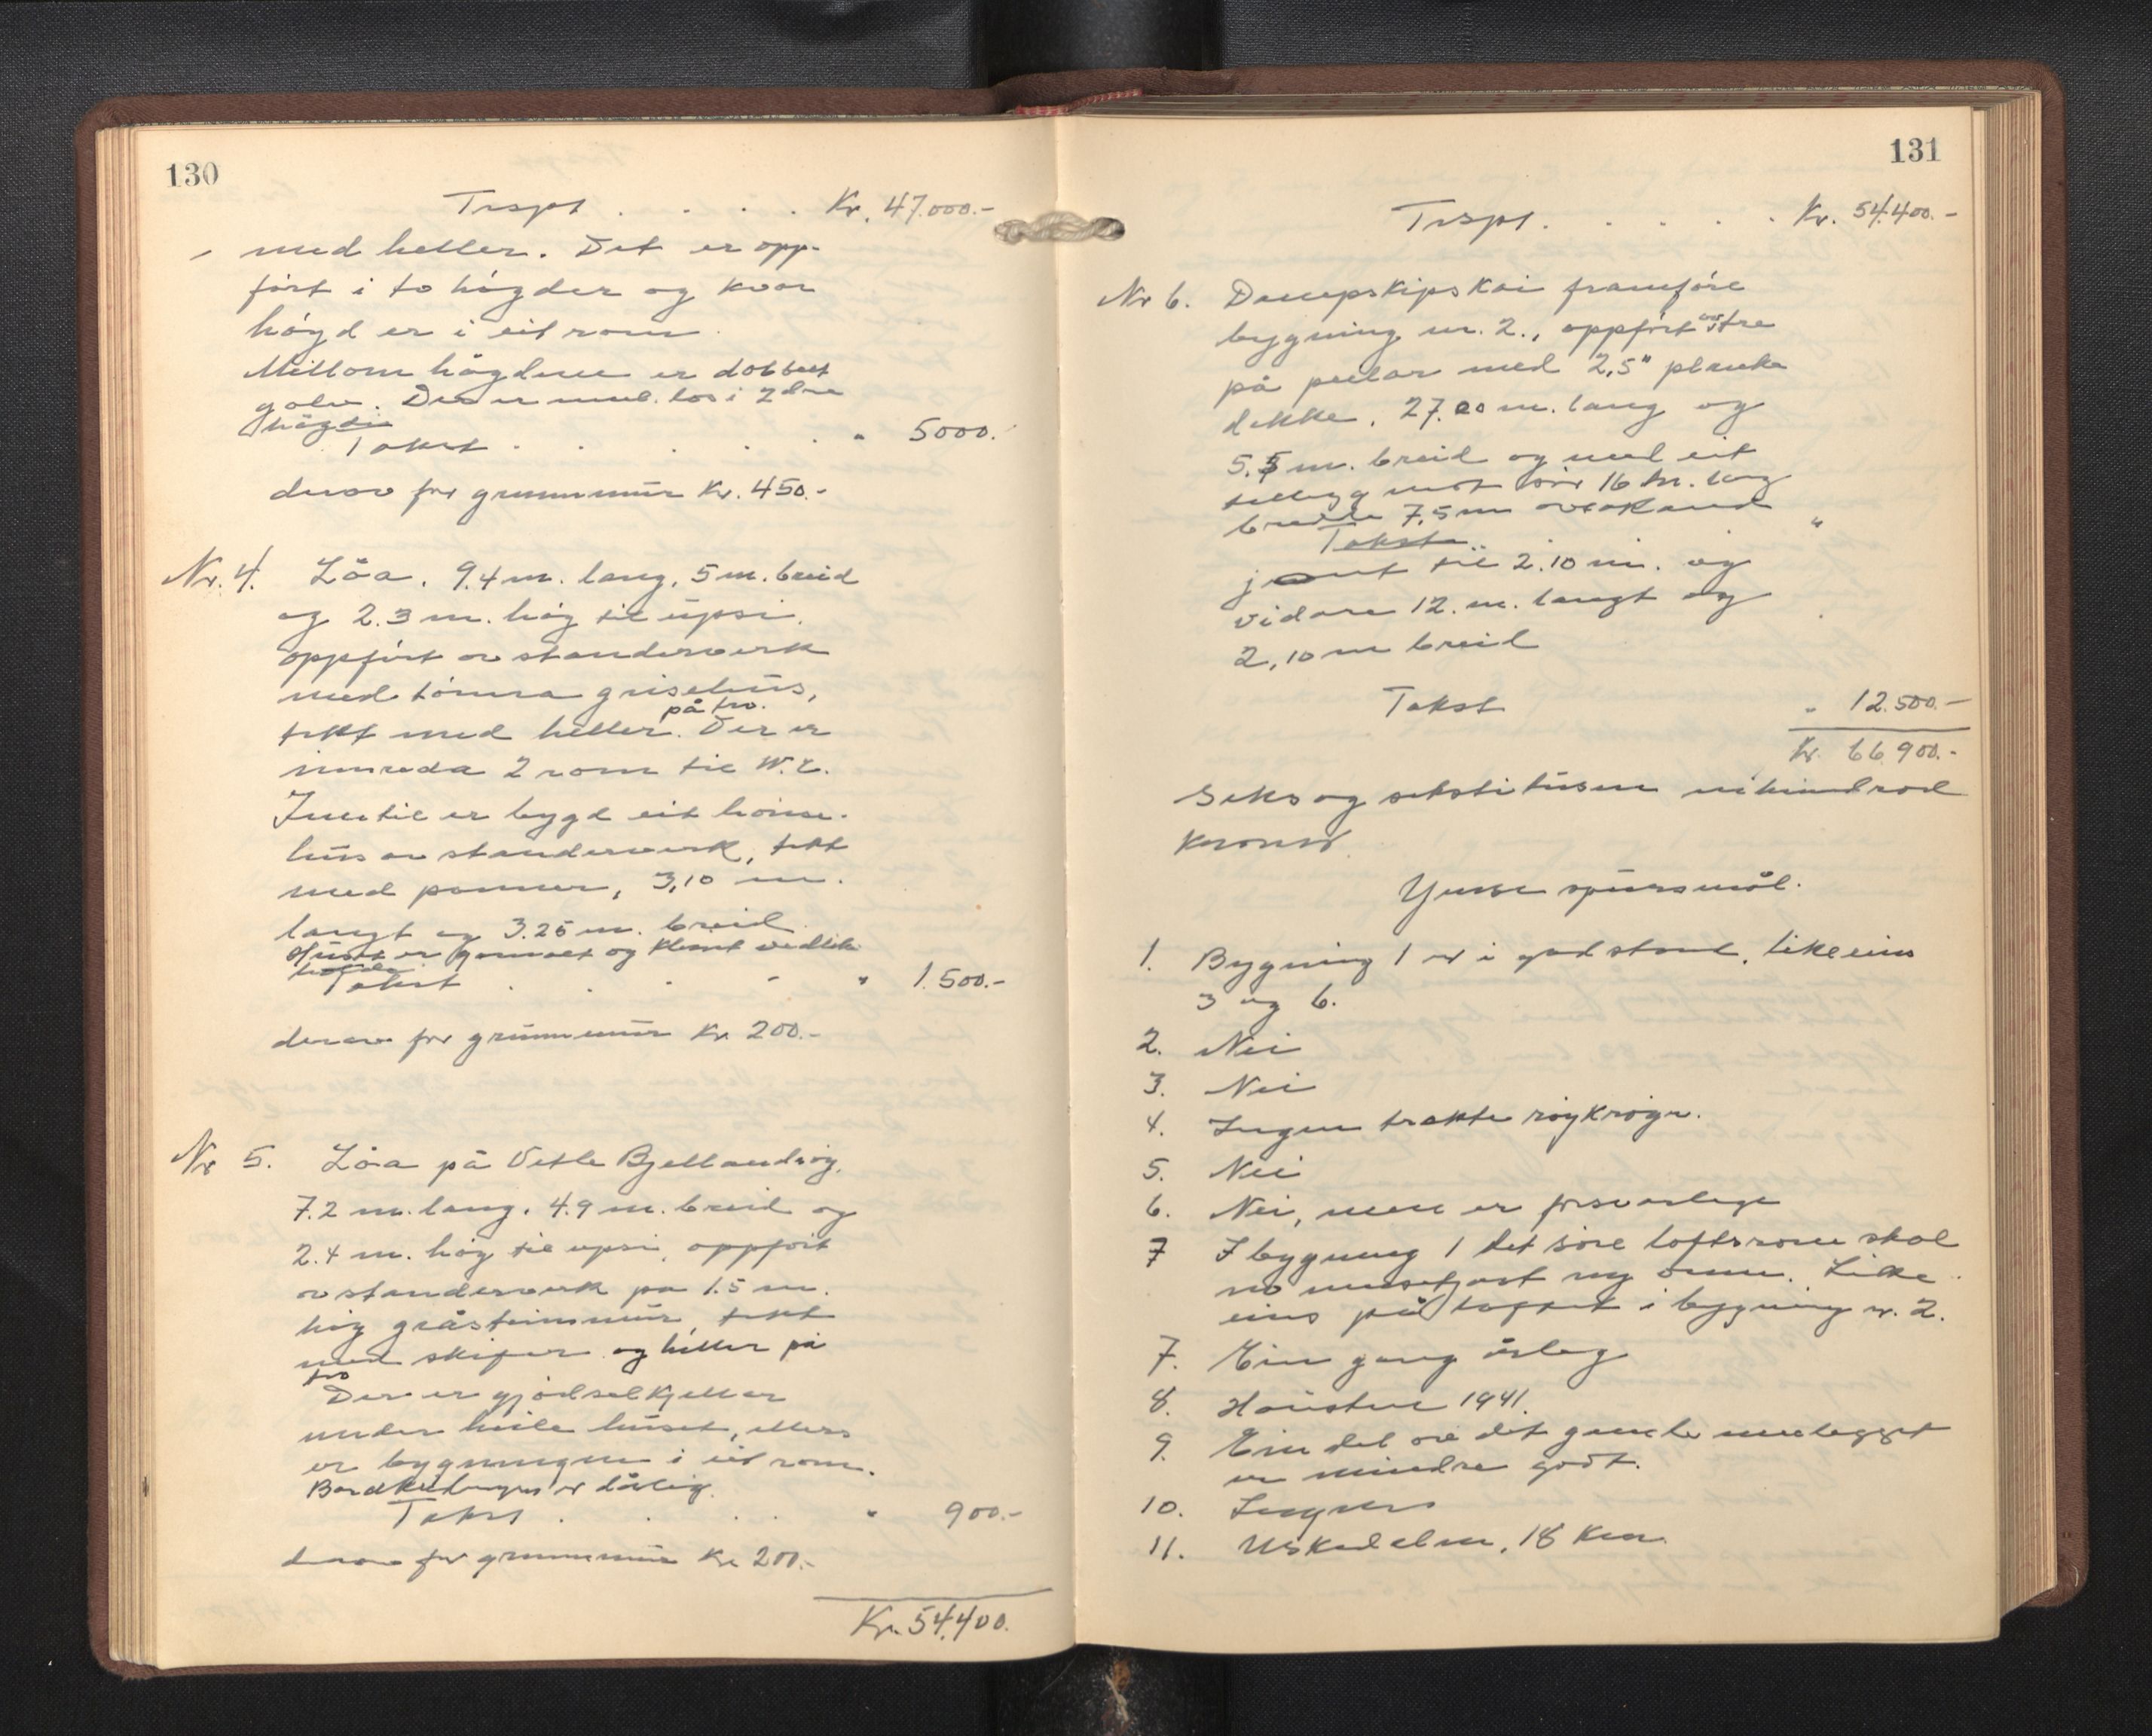 130
Trspt . . . . Kr. 47.000.-
med heller. Det er opp-
ført i to høgder og kvar
høgd er i eit rom.
Millom høgdene er dobbelt
golv. Der er i 2dre
høgdi
Takst . . . . " 5000.
derav for grunnmur Kr. 450.-
Nr. 4. Löa. 9.4 m. lang, 5 m. breid
og 2.3 m. høg til upsi,
oppført av standerverk
med tømra grisehus,
på tro.
tekt med heller. Der er
innreda 2 rom til W.C.
Inntil er bygd eit hønse-
hus av standerverk, tekt
med panner, 3,10 m.
langt og 3.25 m. breid
Huset er gamalt og klent vedlike
halde
Takst . . . - " 1.500.-
derav for grunnmur Kr. 200.-
Nr 5. Löa på Vetle Bjellandsøy,
7.2 m. lang, 4.9 m. breid og
2.4 m. høg til upsi, oppført
av standerverk på 1.5 m.
høg gråsteinsmur, tekt
med skifer og heller på
tro
Der er gjødselkjellar
under heile huset, ellers
er bygningen i eit rom.
Bordkledningen er dårlig.
Takst . . . . " 900.-
derav for grunnmur Kr. 200.-
Kr. 54.400.
131
Trspt. . . . . Kr. 54.400.-
Nr 6. Dampskipskai framføre
bygning nr. 2., oppført
på pælar med 2,5" planke
dekke, 27.00 m. lang og
5.5 m. breid og med eit
tilbygg mot 16 m. lang
bredde 7,5 m
Takst "
jamt til 2.10 m. og
vidare 12. m. langt og
2,10 m breid
Takst " 12.500.-
Kr. 66.900.-
Seks og sekstitusen nihundrad
Kronor.
Ymse spursmål.
1. Bygning 1 er i god stand, likeeins
3 og 6.
2. Nei
3. Nei
4. Ingen trekte røykrøyr.
5. Nei
6. Nei, men er forsvarlege
7 I bygning 1 det søre loftsrom skal
no innsetjast ny omn. Like
eins på loftet i bygning nr. 2.
7. Ein gang årleg
8. Hausten 1941.
9. Ein del av det gamle innlegget
er mindre godt.
10. Ingen
11. Uskedalen, 18 km.